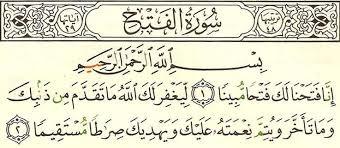 ترتيبها ٤٨ سورة الفتح آياتها ٢٩
بِسْمِ اللَّهِ الرَّحْمَٰنِ الرَّحِيمِ
إِنَّا فَتَحْنَا لَكَ فَتْحًا مُّبِينًا ١ لِّيَغْفِرَ لَكَ اللَّهُ مَا تَقَدَّمَ مِن ذَنبِكَ
وَمَا تَأَخَّرَ وَيُتِمَّ نِعْمَتَهُ عَلَيْكَ وَيَهْدِيَكَ صِرَاطًا مُّسْتَقِيمًا ٢